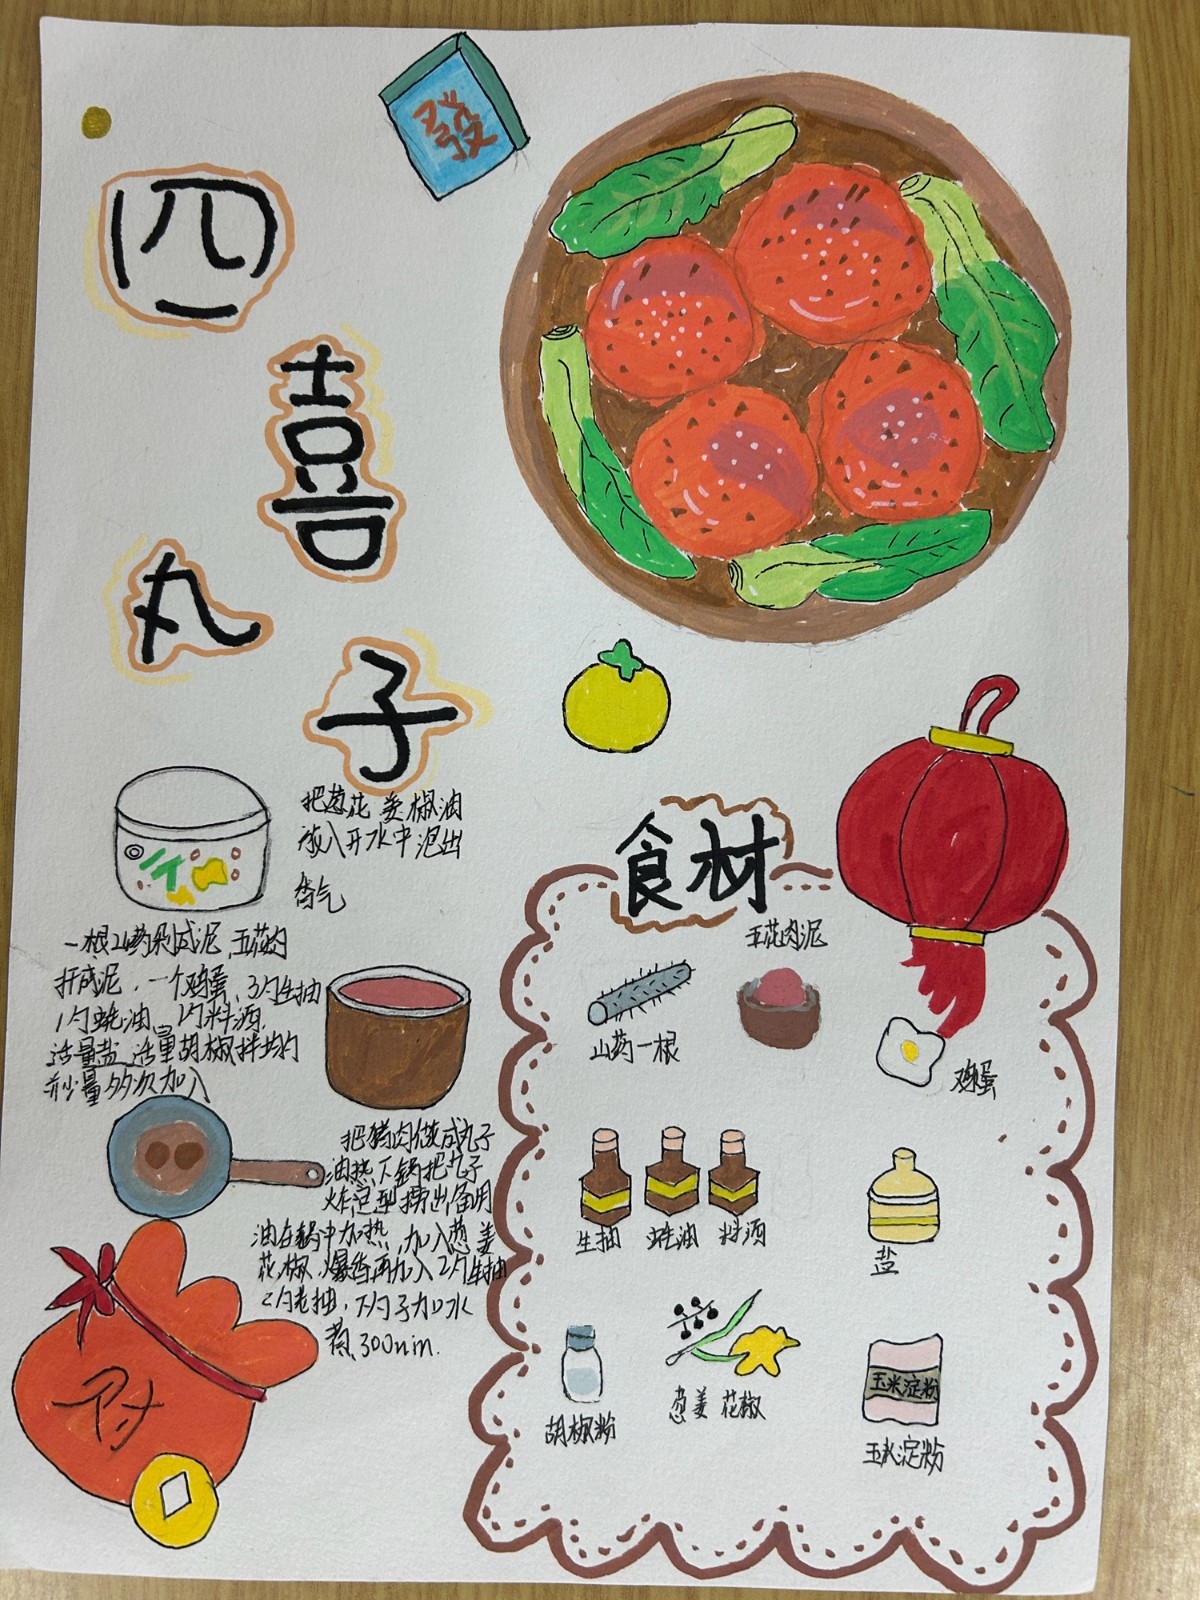 發
四
喜
丸
子
把葱花 姜 椒油
放入开水中 泡出
香气
一根山药剁成泥,五花肉
拌成泥,一个鸡蛋、3勺生抽
1勺蚝油、1勺料酒.
适量盐 适量胡椒拌均匀
少量多次加入
把猪肉做成丸子
油热下锅把丸子
炸定型捞出备用
油在锅中加热,加入葱姜
花椒,爆香再加入2勺生抽
2勺老抽,下勺子加水
煮300min.
财
食材
五花肉泥
山药一根
鸡蛋
生抽 蚝油 料酒
盐
胡椒粉
葱姜 花椒
玉米淀粉
玉米淀粉